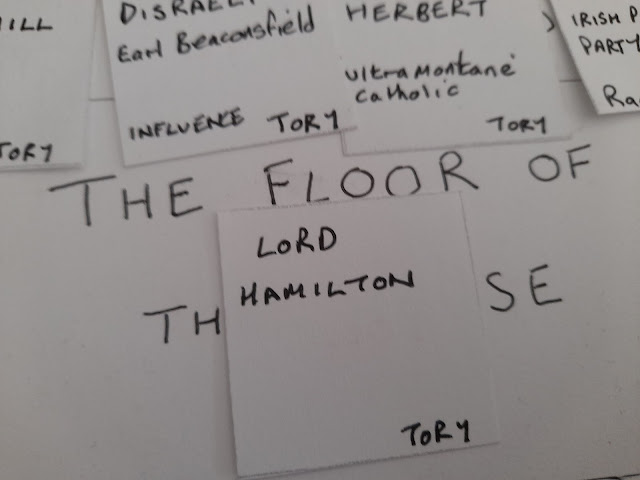 ILL
TORY
DISRAELI
Earl Beaconsfield
INFLUENCE TORY
HERBERT
Ultramontane
Catholic
TORY
IRISH P
PARTY
Ra
THE FLOOR OF
TH SE
LORD
HAMILTON
TORY